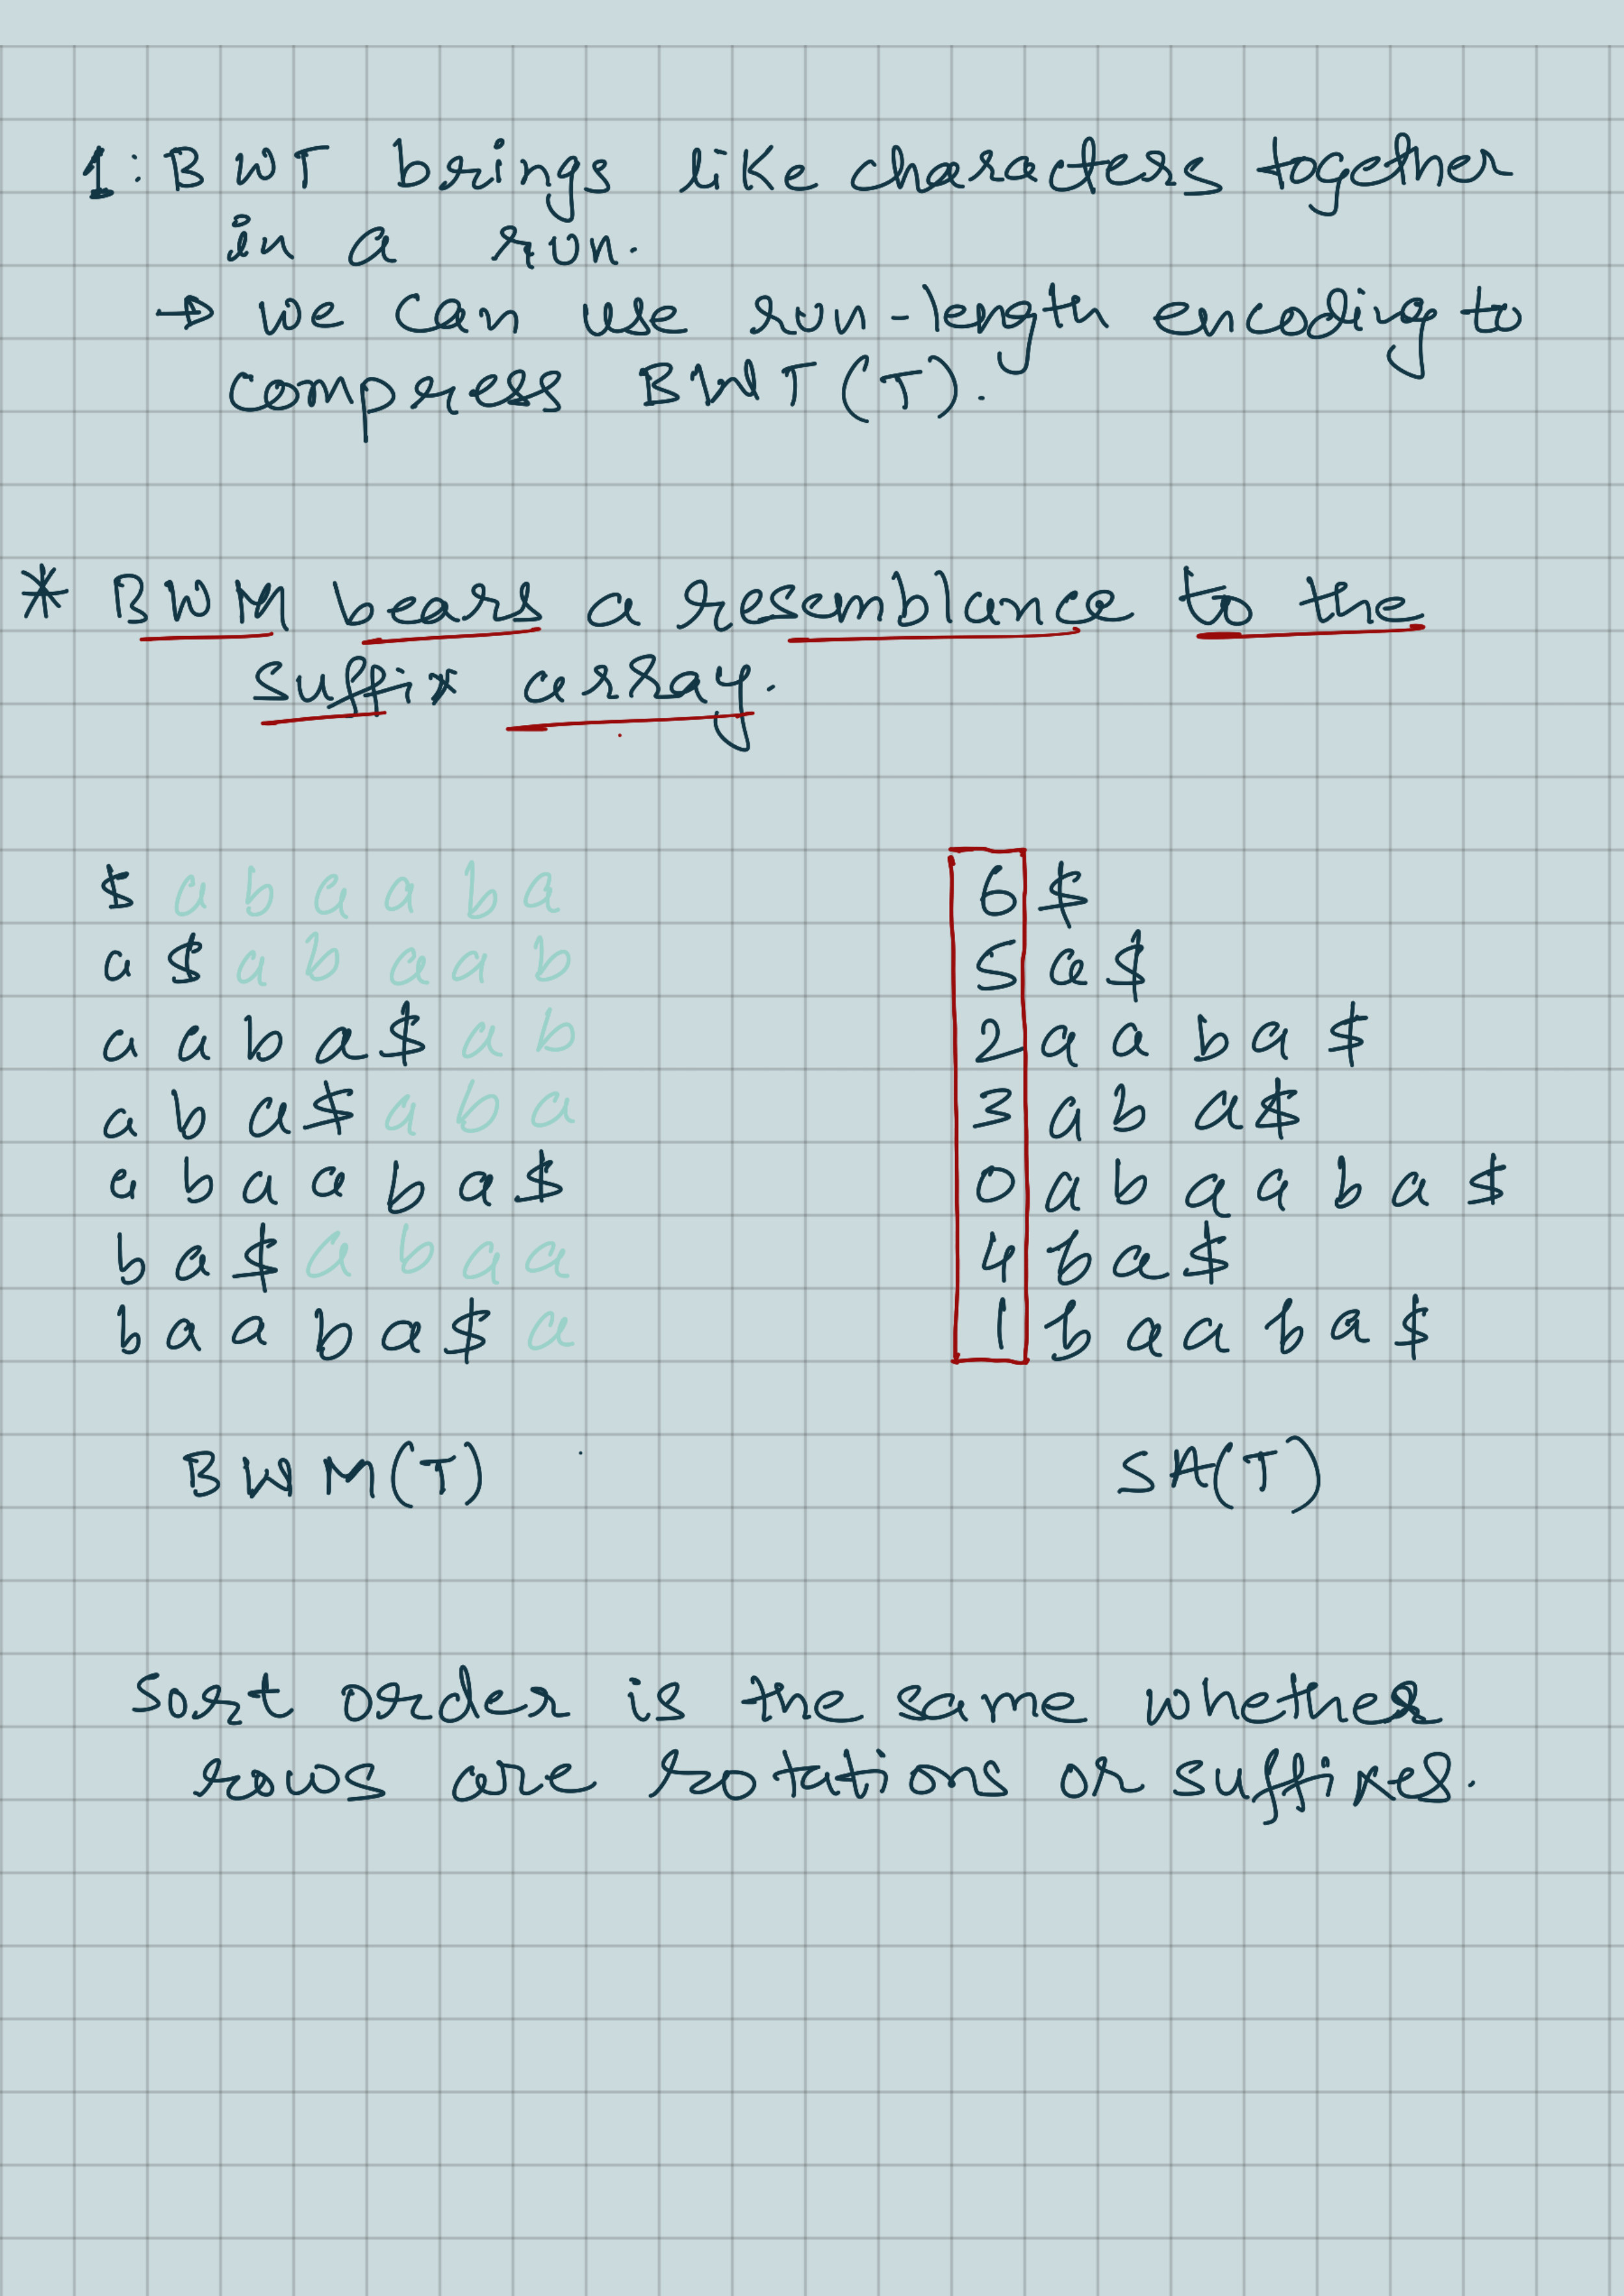 1: BWT brings like characters together
in a run.
→ we can use run-length encoding to
compress BWT(T).
* BWM bears a resemblance to the
suffix array.
$ a b a a b a 6 $
a $ a b a a b 5 a $
a a b a $ a b 2 a a b a $
a b a $ a b a 3 a b a $
a b a a b a $ 0 a b a a b a $
b a $ a b a a 4 b a $
b a a b a $ a 1 b a a b a $
BWM(T) SA(T)
Sort order is the same whether
rows are rotations or suffixes.